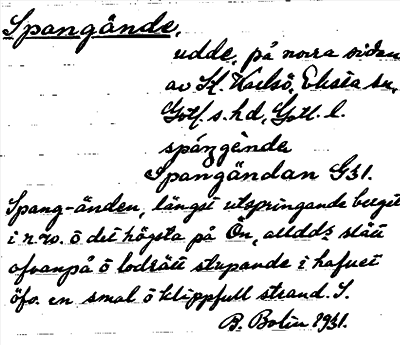 Spangände,
udde, på norra sidan
av St. Karlsö, Eksta sn,
Gotl. s. hd, Gotl. l.
spáŋgènde
Spangändan G31.
Spang-änden, längst utspringande berget
i n.v. o det högsta på Ön, alldds slätt
ofvanpå o lodrätt stupande i hafvet
öfv. en smal o klippfull strand. S.
B. Bolin 1931.